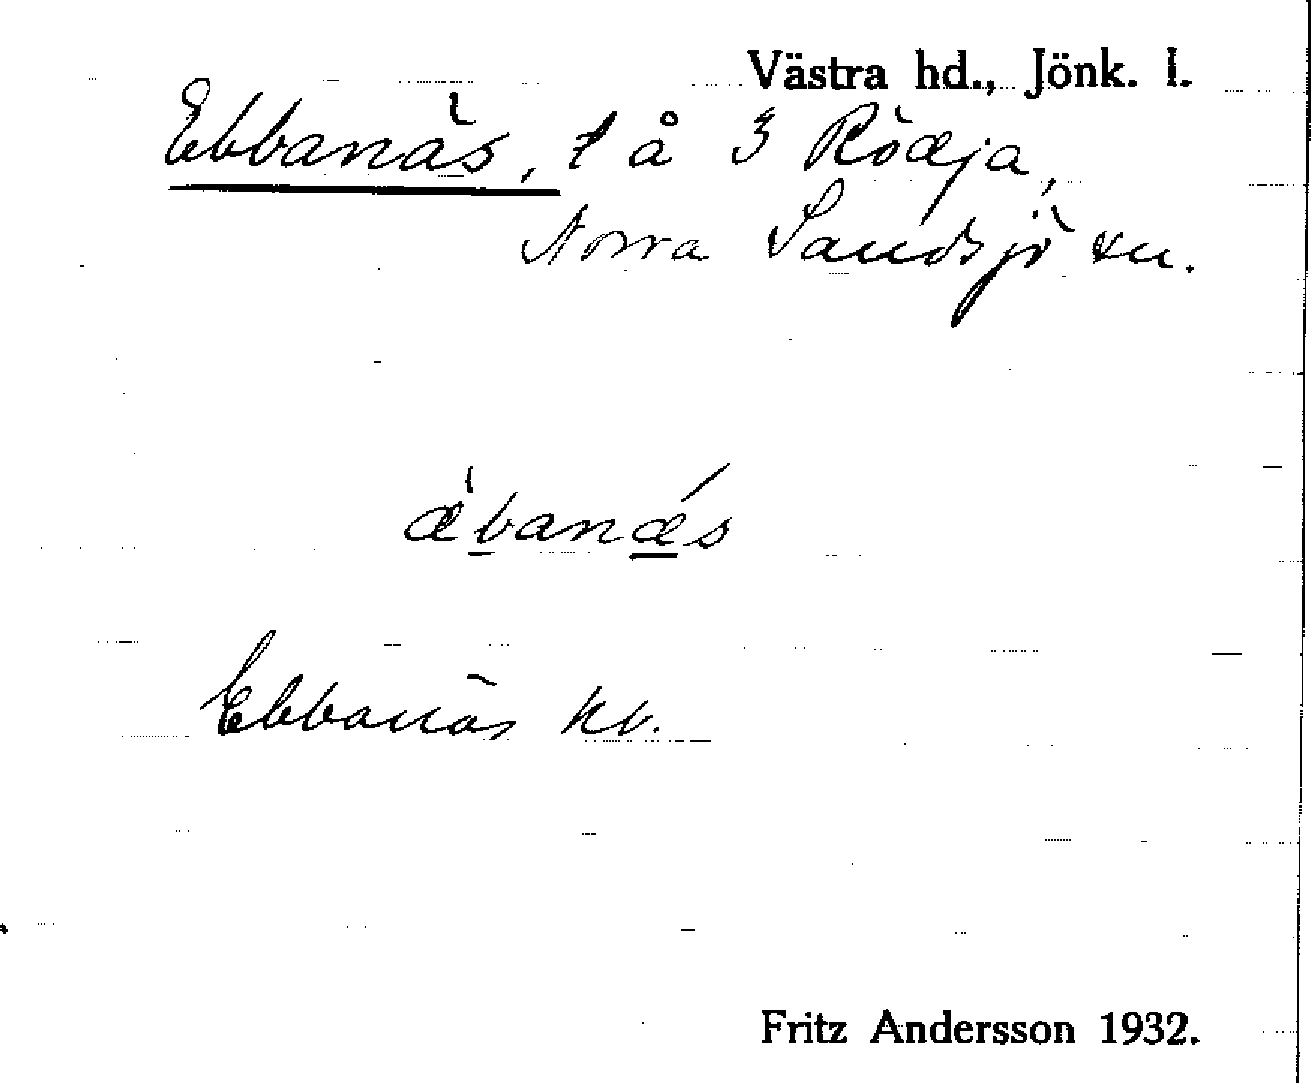 Västra hd., Jönk. l.
Ebbanäs, t å 3 Rödja,
Norra Sandsjö sn.
æ̀b̲anǽ̲s
Ebbanäs kv.
Fritz Andersson 1932.